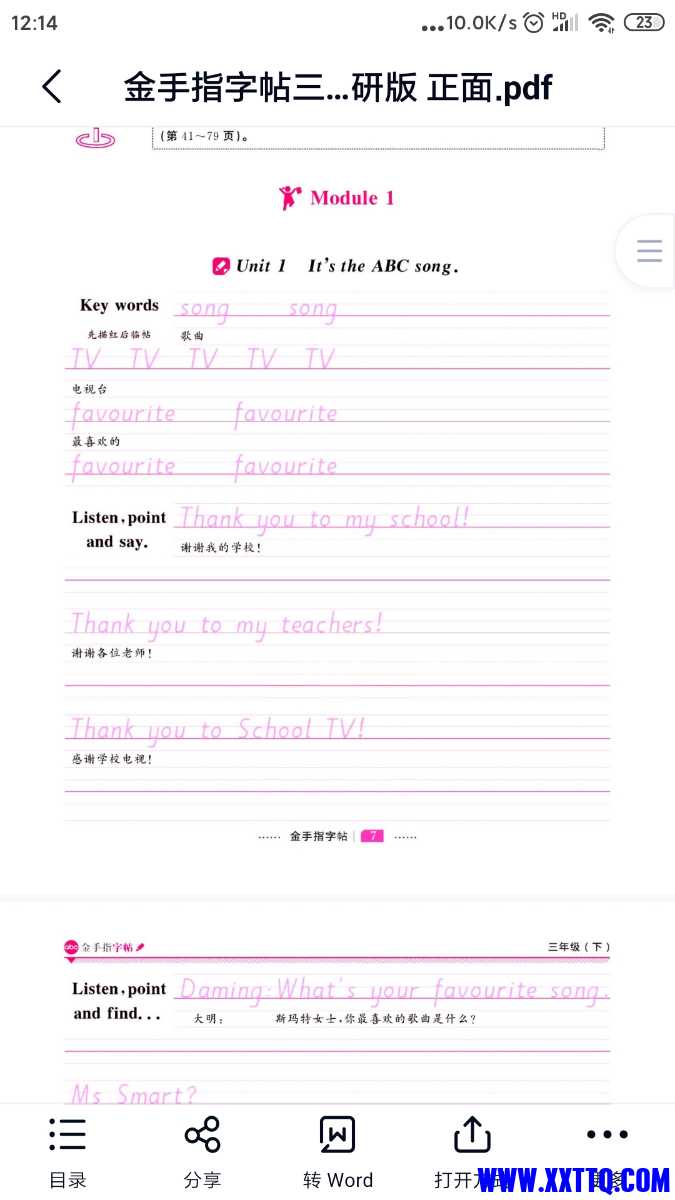 12:14 ...10.0K/s HD 23
金手指字帖三...研版 正面.pdf
(第 41～79 页)。
Module 1
Unit 1 It's the ABC song.
Key words song song
先描红后临帖 歌曲
TV TV TV TV TV
电视台
favourite favourite
最喜欢的
favourite favourite
Listen,point Thank you to my school!
and say. 谢谢我的学校!
Thank you to my teachers!
谢谢各位老师!
Thank you to School TV!
感谢学校电视!
······ 金手指字帖 7 ······
abc 金手指字帖 三年级(下)
Listen,point Daming:What's your favourite song,
and find... 大明: 斯玛特女士,你最喜欢的歌曲是什么?
Ms Smart?
目录 分享 转 Word 打开方式 更多
WWW.XXTTQ.COM